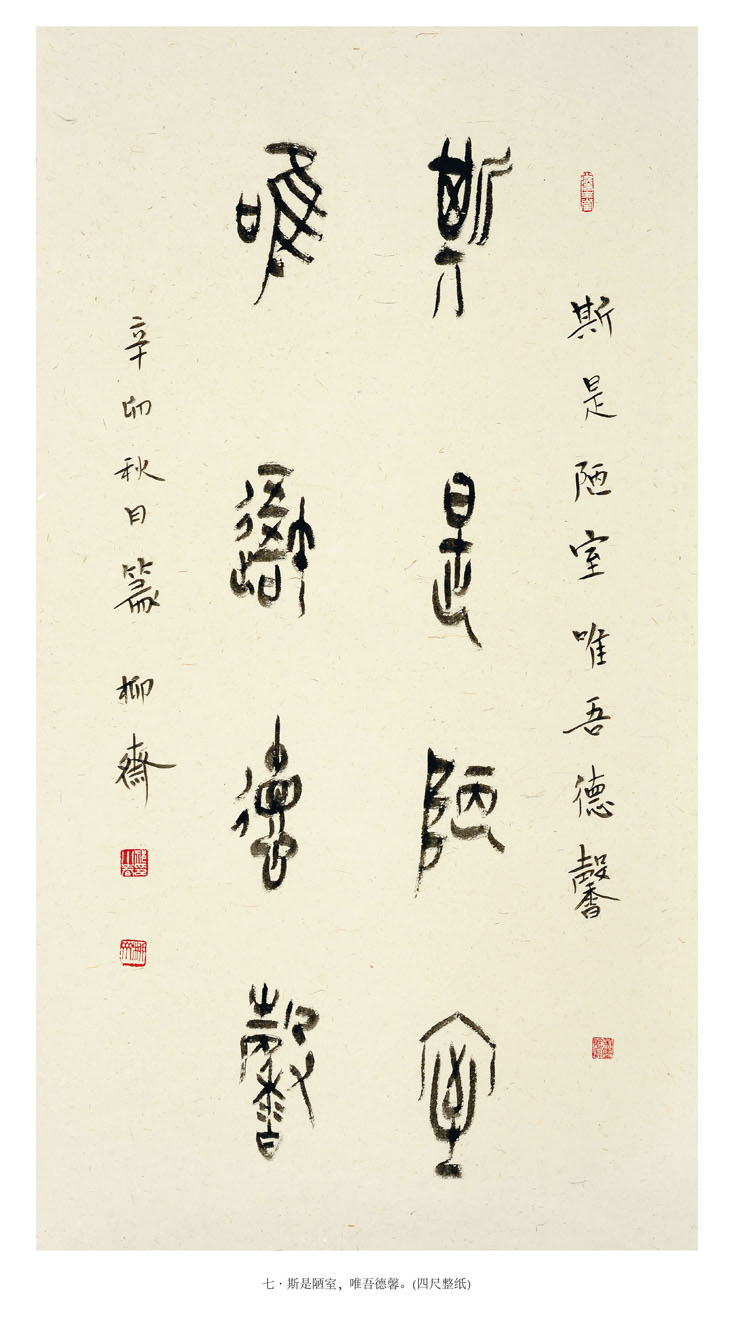 斯是陋室唯吾德馨
斯是陋室
唯吾德馨
辛卯秋日篆 柳斋
七·斯是陋室，唯吾德馨。(四尺整纸)